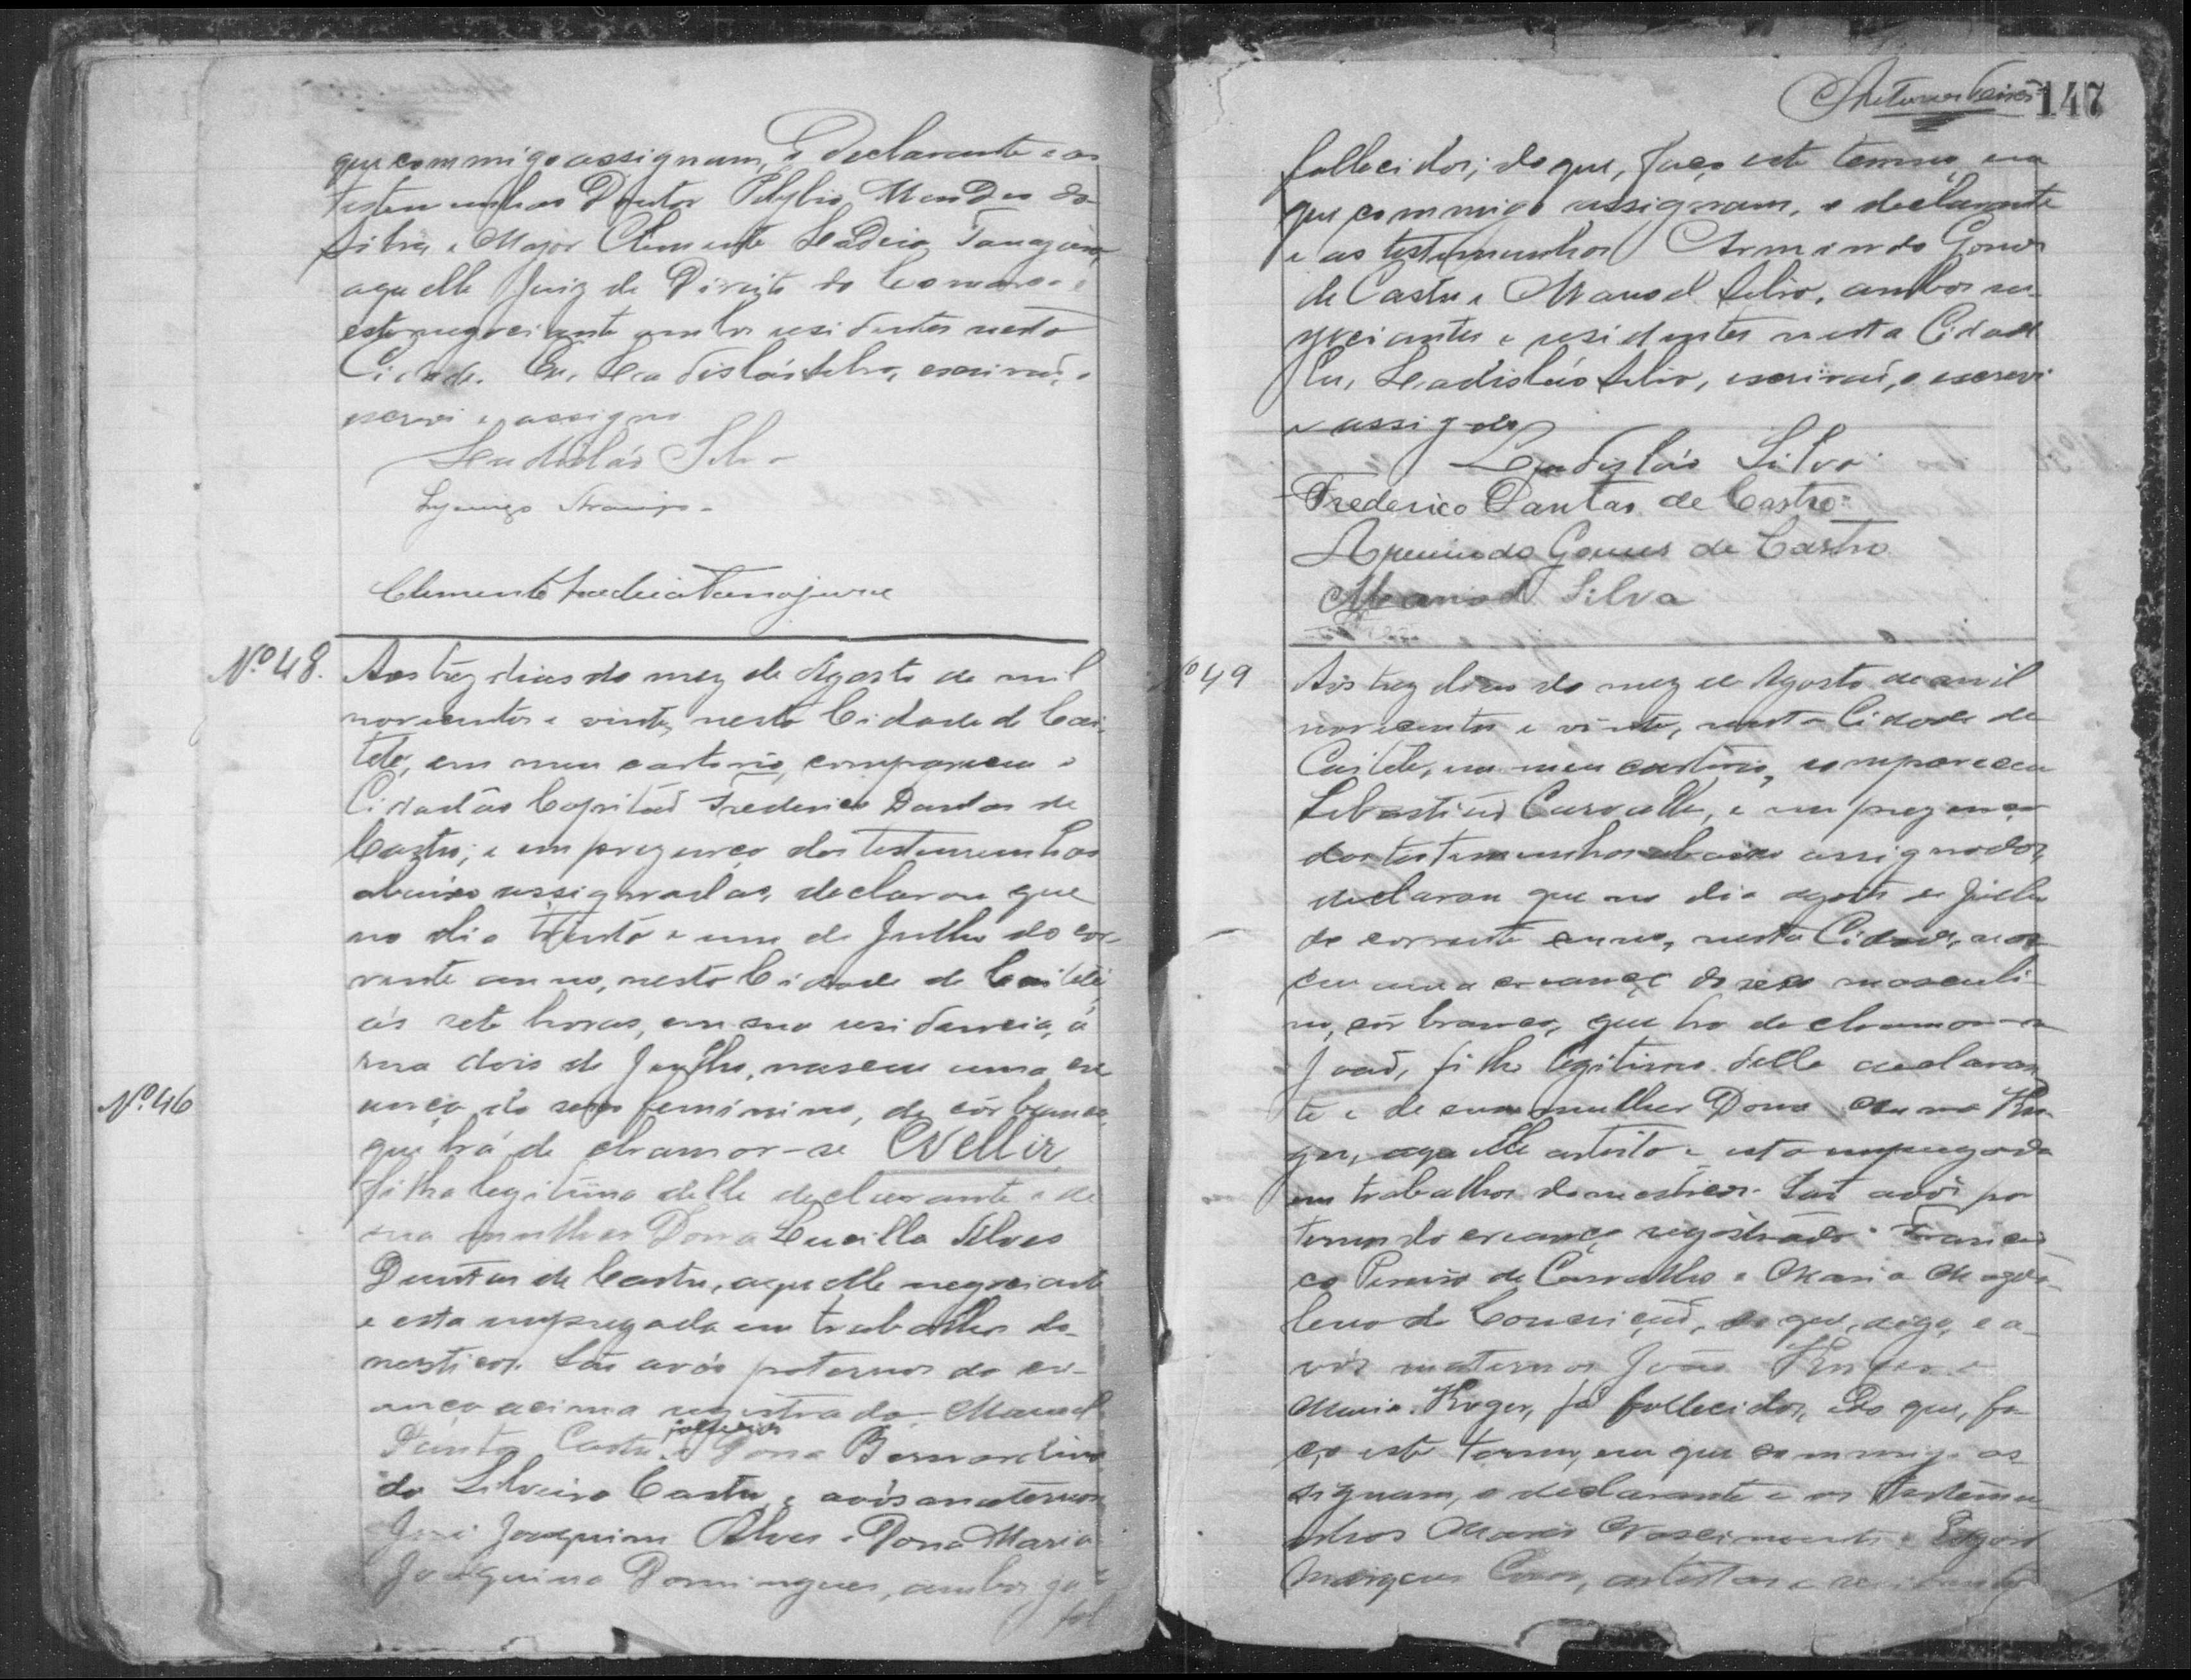 que commigo assignam, o declarante e as
testemunhas Doutor Polybio Mendes da
Silva e Major Clemente Ladeia Tanajura,
aquelle Juiz de Direito da Comarca e
este negociante ambos residentes nesta
Cidade. Eu, Ladisláo Silva, escrivaõ, o
escrevi e assigno
Ladisláo Silva
Araujo.
Clemente Ladeia Tanajura
Nº 48.
Aos trez dias do mez de Agosto de mil
novecentos e vinte, nesta Cidade de Cai-
teté, em meu cartorio, compareceu o
Cidadão Capitaõ Frederico Dantas de
Castro; e em prezença das testemunhas
abaixo assignadas, declarou que
no dia trinta e um de Julho do cor-
rente anno, nesta Cidade de Caiteté,
ás sete horas, em sua residencia, á
rua dois de Julho, nasceu uma cre
ança do sexo feminino, de côr branca,
que há de chamar-se
filha legitima delle declarante e de
sua mulher Dona Lucilla Alves
Dantas de Castro, aquelle negociante
e esta empregada em trabalhos do-
mesticos. Saõ avós paternos da cre-
ança acima registrada: Manoel
Dantas Castro, fallecido e Dona Bernardina
da Silveira Castro, e avós maternos
José Joaquim Alves e Dona Maria
Joaquina Domingues, ambos já
fal
Nº 46
147
fallecidos; do que, faço este termo, em
que commigo assignam, o declarante
e as testemunhas Armindo Gomes
de Castro e Manoel Silva, ambos ne-
gociantes e residentes nesta Cidade
Eu, Ladisláo Silva, escrivaõ, o escrevi
e assigno
Ladisláo Silva.
Frederico Dantas de Castro.
Armindo Gomes de Castro
Manoel Silva
º 49
Aos trez dias do mez de Agosto de mil
novecentos e vinte, nesta Cidade de
Caiteté, em meu cartorio, compareceu
Sebastiaõ Carvalho, e em prezença
das testemunhas abaixo assignadas,
declarou que no dia de Julho
do corrente anno, nesta Cidade, nas-
ceu uma creança do sexo masculi-
no, côr branca, que ha de chamar-se
Joaõ, filho legitimo delle declaran
te e de sua mulher Dona Anna Kru
ger, aquelle artista e esta empregada
em trabalhos domesticos. Saõ avós pa
ternos da creança registrada: Francis
co de Carvalho e Maria Magda-
lena da Conceiçaõ, do que, digo, e a-
vós maternos João Kruger e
Maria Kruger, já fallecidos, do que, fa-
ço este termo, em que commigo as
signam, o declarante e as testemu-
nhas Nascimento e Edgard
Marques artistas e residentes